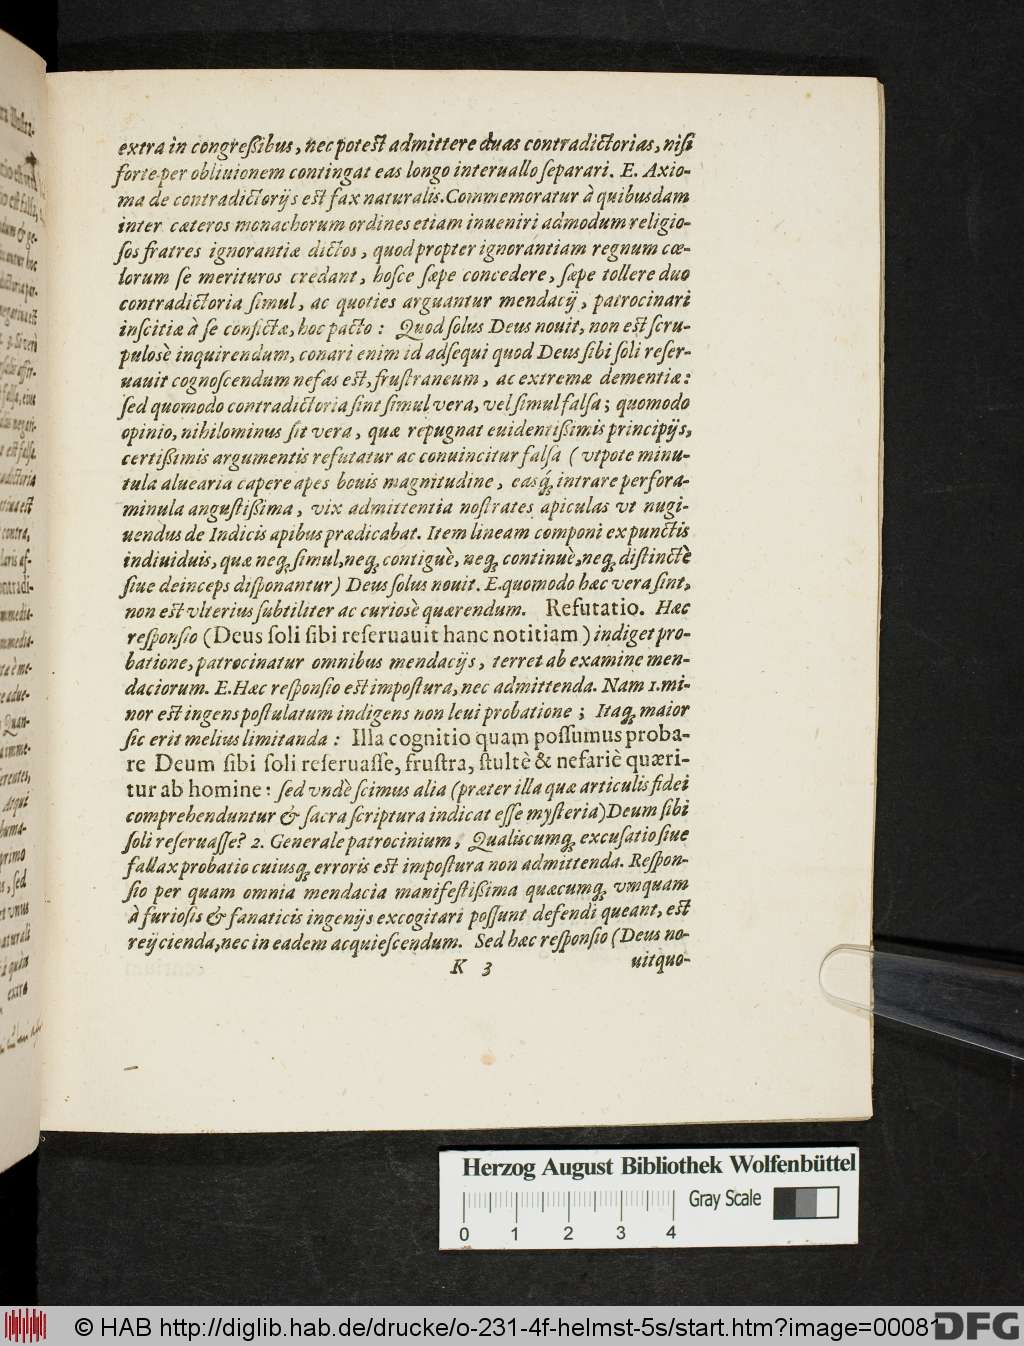 extra in congreßibus, nec potest admittere duas contradictorias, nisi
forte per obliuionem contingat eas longo interuallo separari. E. Axio-
ma de contradictorijs est fax naturalis. Commemoratur à quibusdam
inter cæteros monachorum ordines etiam inueniri admodum religio-
sos fratres ignorantiæ dictos, quod propter ignorantiam regnum cœ-
lorum se merituros credant, hosce sæpe concedere, sæpe tollere duo
contradictoria simul, ac quoties arguantur mendacij, patrocinari
inscitiæ à se confictæ, hoc pacto: Quod solus Deus nouit, non est scru-
pulosè inquirendum, conari enim id adsequi quod Deus sibi soli reser-
uauit cognoscendum nefas est, frustraneum, ac extremæ dementiæ:
sed quomodo contradictoria sint simul vera, vel simul falsa; quomodo
opinio, nihilominus sit vera, quæ repugnat euidentißimis principijs,
certißimis argumentis refutatur ac conuincitur falsa (vtpote minu-
tula aluearia capere apes bouis magnitudine, easq́; intrare perfora-
minula angustißima, vix admittentia nostrates apiculas vt nugi-
uendus de Indicis apibus prædicabat. Item lineam componi ex punctis
indiuiduis, quæ neq; simul, neq; contiguè, neq; continuè, neq; distinctè
siue deinceps disponantur) Deus solus nouit. E. quomodo hæc vera sint,
non est vlterius subtiliter ac curiosè quærendum. Refutatio. Hæc
responsio (Deus soli sibi reseruauit hanc notitiam) indiget pro-
batione, patrocinatur omnibus mendacijs, terret ab examine men-
daciorum. E. Hæc responsio est impostura, nec admittenda. Nam 1. mi-
nor est ingens postulatum indigens non leui probatione; Itaq; maior
sic erit melius limitanda: Illa cognitio quam possumus proba-
re Deum sibi soli reseruasse, frustra, stultè & nefariè quæri-
tur ab homine: sed vndè scimus alia (præter illa quæ articulis fidei
comprehenduntur & sacra scriptura indicat esse mysteria) Deum sibi
soli reseruasse? 2. Generale patrocinium, Qualiscumq; excusatio siue
fallax probatio cuiusq; erroris est impostura non admittenda. Respon-
sio per quam omnia mendacia manifestißima quæcumq; vmquam
à furiosis & fanaticis ingenijs excogitari possunt defendi queant, est
reijcienda, nec in eadem acquiescendum. Sed hæc responsio (Deus no-
K 3 uit quo-
Herzog August Bibliothek Wolfenbüttel
Gray Scale
0 1 2 3 4
© HAB http://diglib.hab.de/drucke/o-231-4f-helmst-5s/start.htm?image=00081
DFG